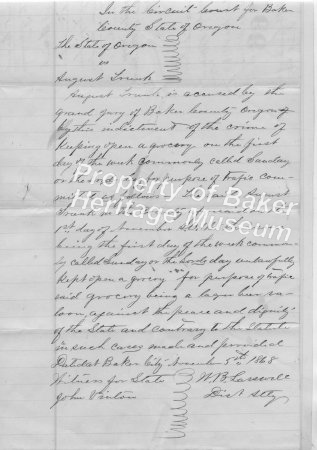 In the Circuit Court for Baker
County State of Oregon
The State of Oregon
vs
August Trunk
August Trunk is accused by the
grand jury of Baker County Oregon
by this indictment of the crime of
Keeping open a grocery on the first
day of the week commonly called Sunday
or the Lords day for purpose of trafic com-
mitted as follows
Trunk on the
1st day of November
being the first day of the week common-
ly called Sunday or the Lords day unlawfully
Kept open a grocery for purpose of trafic
said grocery being a lager beer sa-
loon, against the peace and dignity
of the State and contrary to the Statute
in such cases made and provided
Dated at Baker City November 5th 1868
Witness for State
W. B. Lasswell
John Vinton
Dist Atty
Property of Baker
Heritage Museum